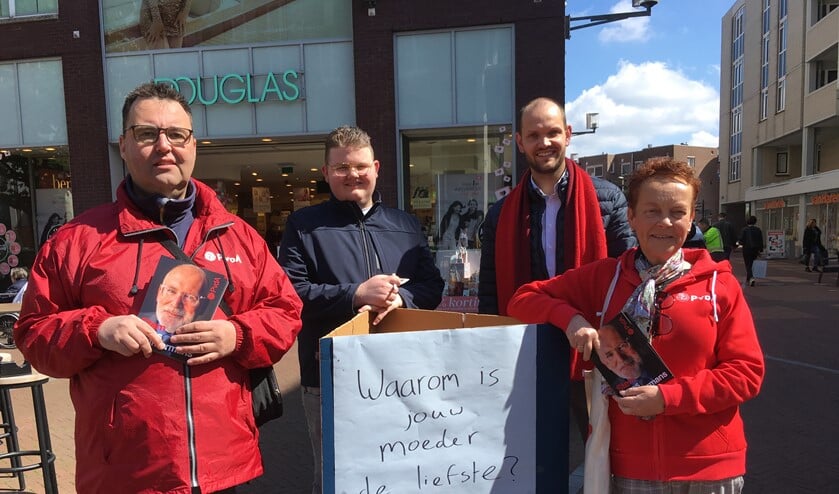 DOUGLAS
PvdA
PvdA
Waarom is
jouw
moeder
de liefste?
korting